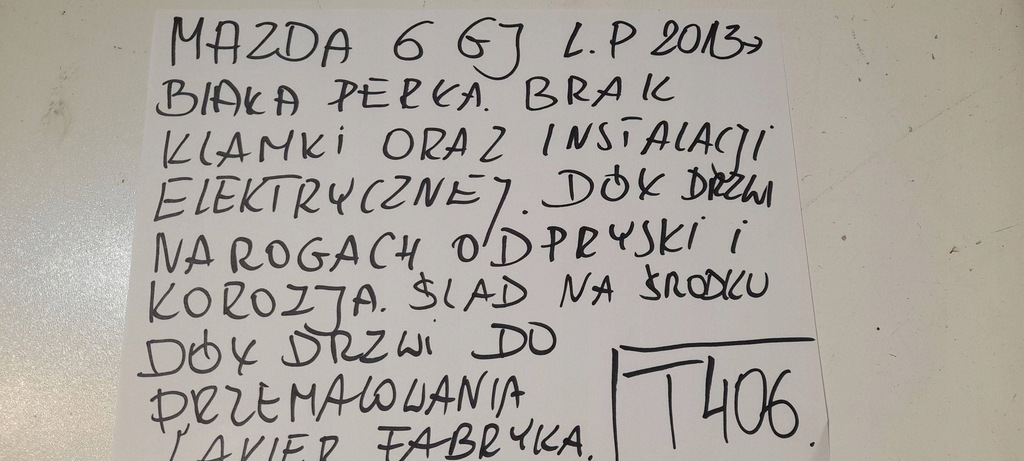 MAZDA 6 GJ L.P 2013→
BIAŁA PERŁA. BRAK
KLAMKI ORAZ INSTALACJI
ELEKTRYCZNEJ. DÓŁ DRZWI
NA ROGACH ODPRYSKI I
KOROZJA. ŚLAD NA ŚRODKU
DÓŁ DRZWI DO
PRZEMALOWANIA
LAKIER FABRYKA.
T406.